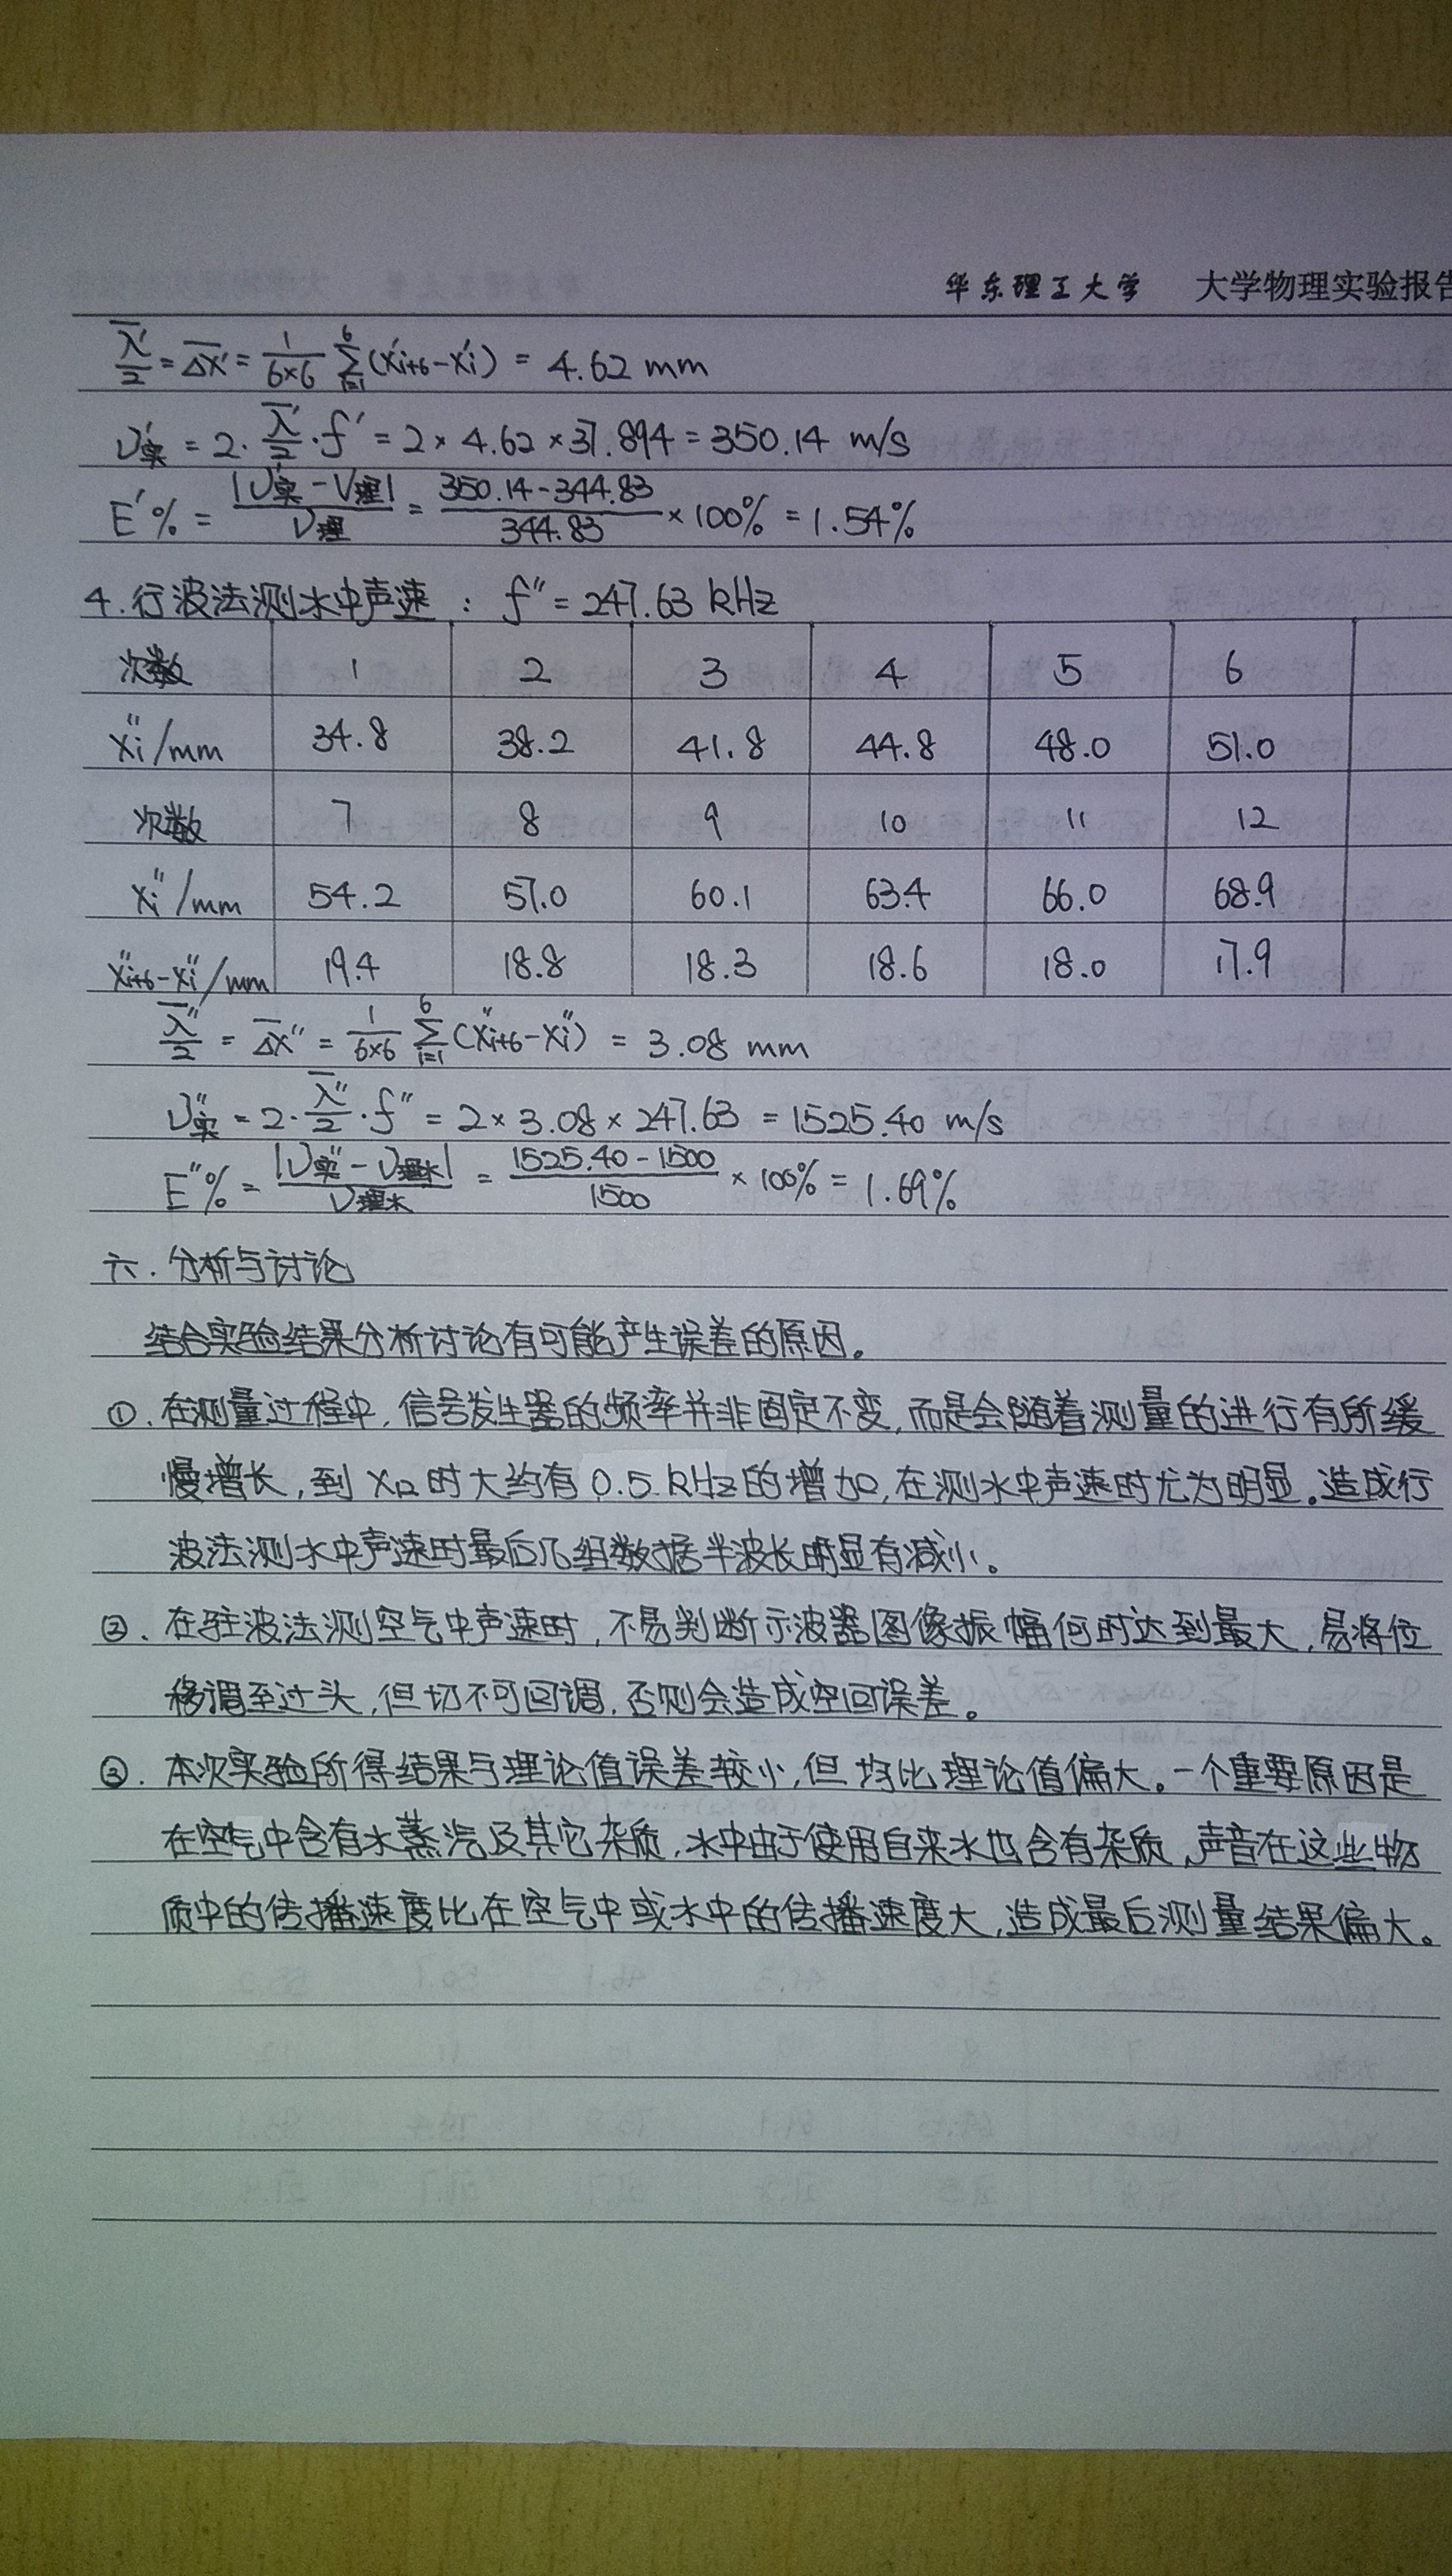 华东理工大学 大学物理实验报告
λ̅'/2 = Δx̅' = 1/(6×6) Σ(i=1→6) (x'i+6 - x'i) = 4.62 mm
υ'实 = 2·λ̅'/2·f' = 2×4.62×37.894 = 350.14 m/s
E'% = |υ'实 - V理|/υ理 = (350.14-344.83)/344.83 × 100% = 1.54%
4.行波法测水中声速：f" = 247.63 kHz
次数 1 2 3 4 5 6
xi"/mm 34.8 38.2 41.8 44.8 48.0 51.0
次数 7 8 9 10 11 12
xi"/mm 54.2 57.0 60.1 63.4 66.0 68.9
x"i+6-x"i/mm 19.4 18.8 18.3 18.6 18.0 17.9
λ̅"/2 = Δx̅" = 1/(6×6) Σ(i=1→6) (x"i+6 - x"i) = 3.08 mm
υ"实 = 2·λ̅"/2·f" = 2×3.08×247.63 = 1525.40 m/s
E"% = |υ"实 - υ理水|/υ理水 = (1525.40-1500)/1500 × 100% = 1.69%
六.分析与讨论
结合实验结果分析讨论有可能产生误差的原因。
①.在测量过程中,信号发生器的频率并非固定不变,而是会随着测量的进行有所缓
慢增长,到x12时大约有0.5kHz的增加,在测水中声速时尤为明显。造成行
波法测水中声速时最后几组数据半波长明显有减小。
②.在驻波法测空气中声速时,不易判断示波器图像振幅何时达到最大,易将位
移调至过头,但切不可回调,否则会造成空回误差。
③.本次实验所得结果与理论值误差较小,但均比理论值偏大。一个重要原因是
在空气中含有水蒸汽及其它杂质,水中由于使用自来水也含有杂质,声音在这些物
质中的传播速度比在空气中或水中的传播速度大,造成最后测量结果偏大。